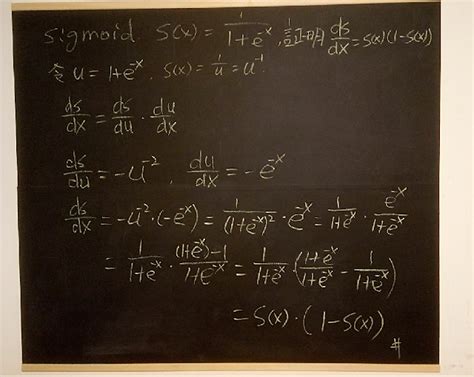 sigmoid. S(x) = 1/(1+e^-x), 証明 ds/dx = S(x)(1-S(x))
令 u = 1+e^-x, S(x) = 1/u = u^-1
ds/dx = ds/du · du/dx
ds/du = -u^-2, du/dx = -e^-x
ds/dx = -u^-2·(-e^-x) = 1/(1+e^-x)^2 · e^-x = 1/(1+e^-x) · e^-x/(1+e^-x)
= 1/(1+e^-x) · ((1+e^-x)-1)/(1+e^-x) = 1/(1+e^-x) · ((1+e^-x)/(1+e^-x) - 1/(1+e^-x))
= S(x)·(1-S(x))
#